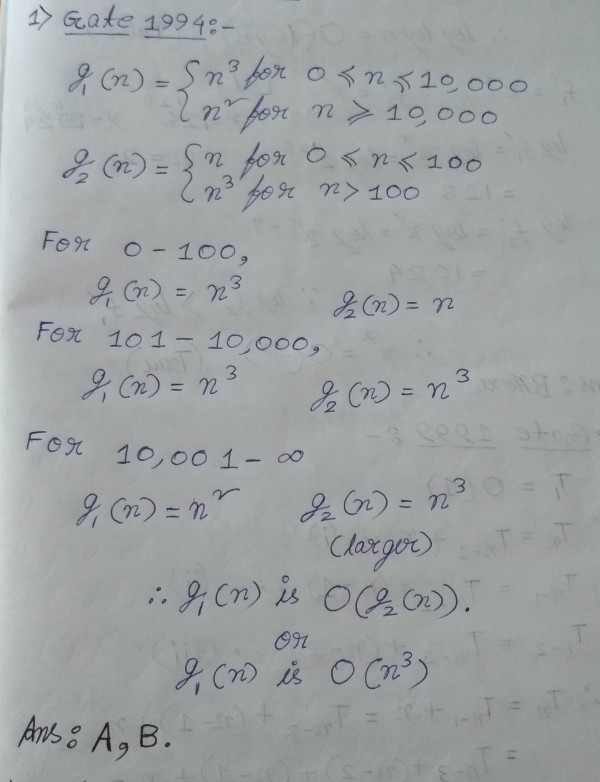 1) Gate 1994:-
g₁(n) = { n³ for 0 ≤ n ≤ 10,000
n² for n ≥ 10,000
g₂(n) = { n for 0 ≤ n ≤ 100
n³ for n > 100
For 0 - 100,
g₁(n) = n³ g₂(n) = n
For 101 - 10,000,
g₁(n) = n³ g₂(n) = n³
For 10,001 - ∞
g₁(n) = n² g₂(n) = n³
(larger)
∴ g₁(n) is O(g₂(n)).
or
g₁(n) is O(n³)
Ans: A, B.